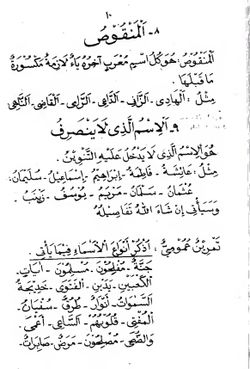 ١٠
٨- اَلْمَنْقُوْصُ
اَلْمَنْقُوْصُ: هُوَ كُلُّ اسْمٍ مُعْرَبٍ آخِرُهُ يَاءٌ لَازِمَةٌ مَكْسُوْرَةٌ
مَا قَبْلَهَا.
مِثْلُ: اَلْهَادِى - اَلزَّانِى - اَلدَّاعِى - اَلرَّاعِى - اَلْقَاضِى - اَلنَّاهِى
٩- اَلْاِسْمُ الَّذِى لَا يَنْصَرِفُ
هُوَ الْاِسْمُ الَّذِى لَا يَدْخُلُ عَلَيْهِ التَّنْوِيْنُ.
مِثْلُ: عَائِشَةُ - فَاطِمَةُ - إِبْرَاهِيْمُ - إِسْمَاعِيْلُ - سُلَيْمَانُ -
عُثْمَانُ - سَلْمَانُ - مَرْيَمُ - يُوْسُفُ - زَيْنَبُ -
وَسَيَأْتِى إِنْ شَاءَ اللهُ تَفَاصِيْلُهُ
تَمْرِيْنٌ عُمُوْمِىٌّ: اُذْكُرْ أَنْوَاعَ الْأَسْمَاءِ فِيْمَا يَأْتِى.
جَنَّةٌ - مُفْلِحُوْنَ - مُسْلِمُوْنَ - آيَاتٌ -
اَلْكَعْبَيْنِ - يَدَيْنِ - اَلْفَتْوَى - خَدِيْجَةُ
اَلسَّمٰوَاتُ - أَنْوَارٌ - طُرُقٌ - سُفْيَانُ -
اَلْمُفْتِى - قُلُوْبُهُمْ - اَلسَّاعِى - أَعْمَى -
وَالضُّحَى - مُصْلِحُوْنَ - مَرَضٌ - صَابِرَاتٌ -